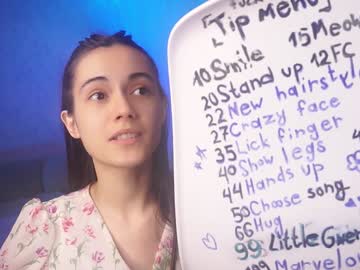 「Tip Menu
10 Smile 15 Meow
20 Stand up 12 FC
22 New hairstyl
27 Crazy face
35 Lick finger
40 Show legs
44 Hands up
50 Choose song
66 Hug
99 Little Gwen
Marvelo